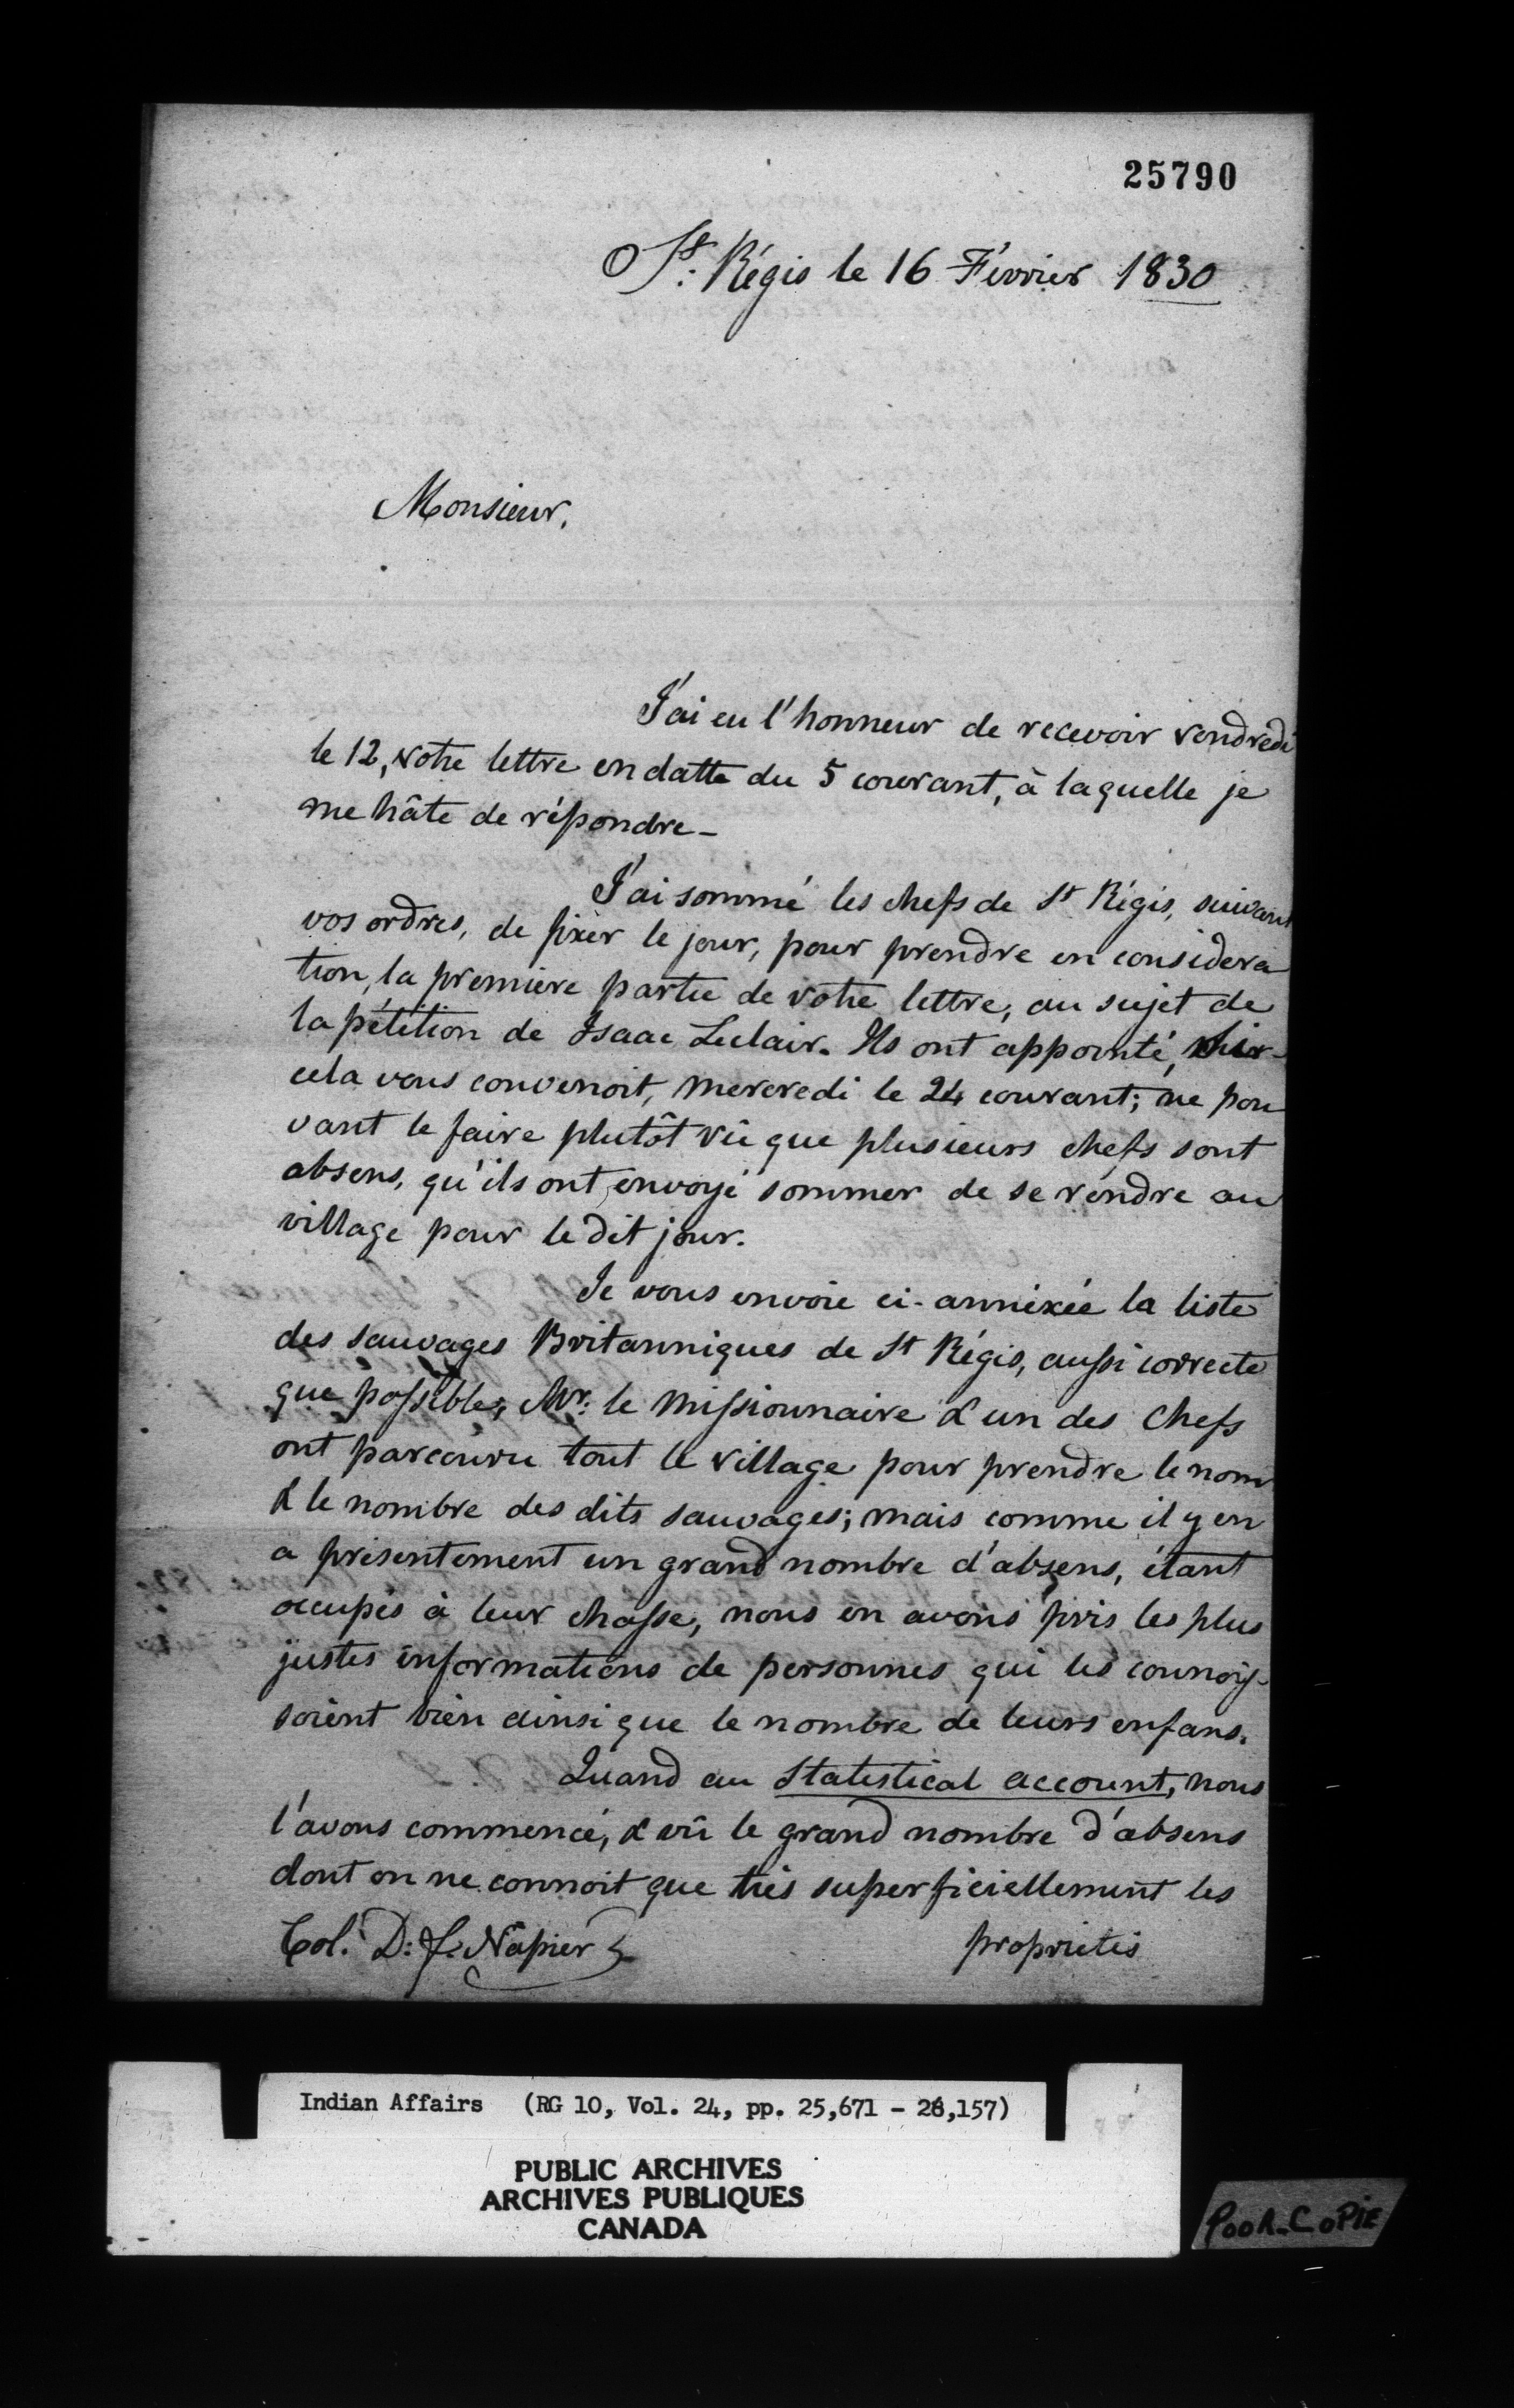 25790
St. Régis le 16 Février 1830
Monsieur,
J'ai eu l'honneur de recevoir vendredi
le 12, votre lettre en datte du 5 courant, à laquelle je
me hâte de répondre –
J'ai sommé les chefs de St Régis, suivant
vos ordres, de fixer le jour, pour prendre en considera
tion, la premiere partie de votre lettre, au sujet de
la pétition de Isaac Leclair. Ils ont appointé,
cela vous convenoit, mercredi le 24 courant; ne pou
vant le faire plutôt vû que plusieurs chefs sont
absens, qu'ils ont envoyé sommer de se rendre au
village pour le dit jour.
Je vous envoie ci-annéxée la liste
des sauvages Britanniques de St Régis, aussi correcte
que possible, Mr. le Missionnaire & un des Chefs
ont parcouru tout le village pour prendre le nom
& le nombre des dits sauvages; mais comme il y en
a présentement un grand nombre d'absens, étant
occupés à leur chasse, nous en avons pris les plus
justes informations de personnes qui les connois-
soient bien ainsi que le nombre de leurs enfans.
Quand au Statistical account, nous
l'avons commencé, & vû le grand nombre d'absens
dont on ne connoit que très superficiellement les
Col. D: J. Napier propriétés
Indian Affairs (RG 10, Vol. 24, pp. 25,671 - 26,157)
PUBLIC ARCHIVES
ARCHIVES PUBLIQUES
CANADA
POOR_COPIE